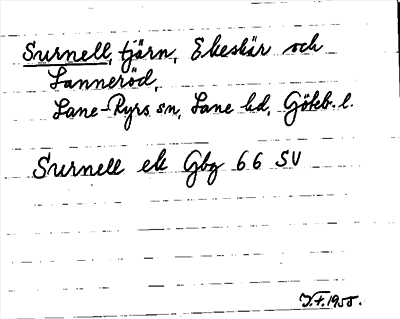 Surnell, tjärn, Ekeskär och
Lanneröd,
Lane-Ryrs sn, Lane hd, Göteb. l.
Surnell ek Gbg 66 SV
J.F. 1955.